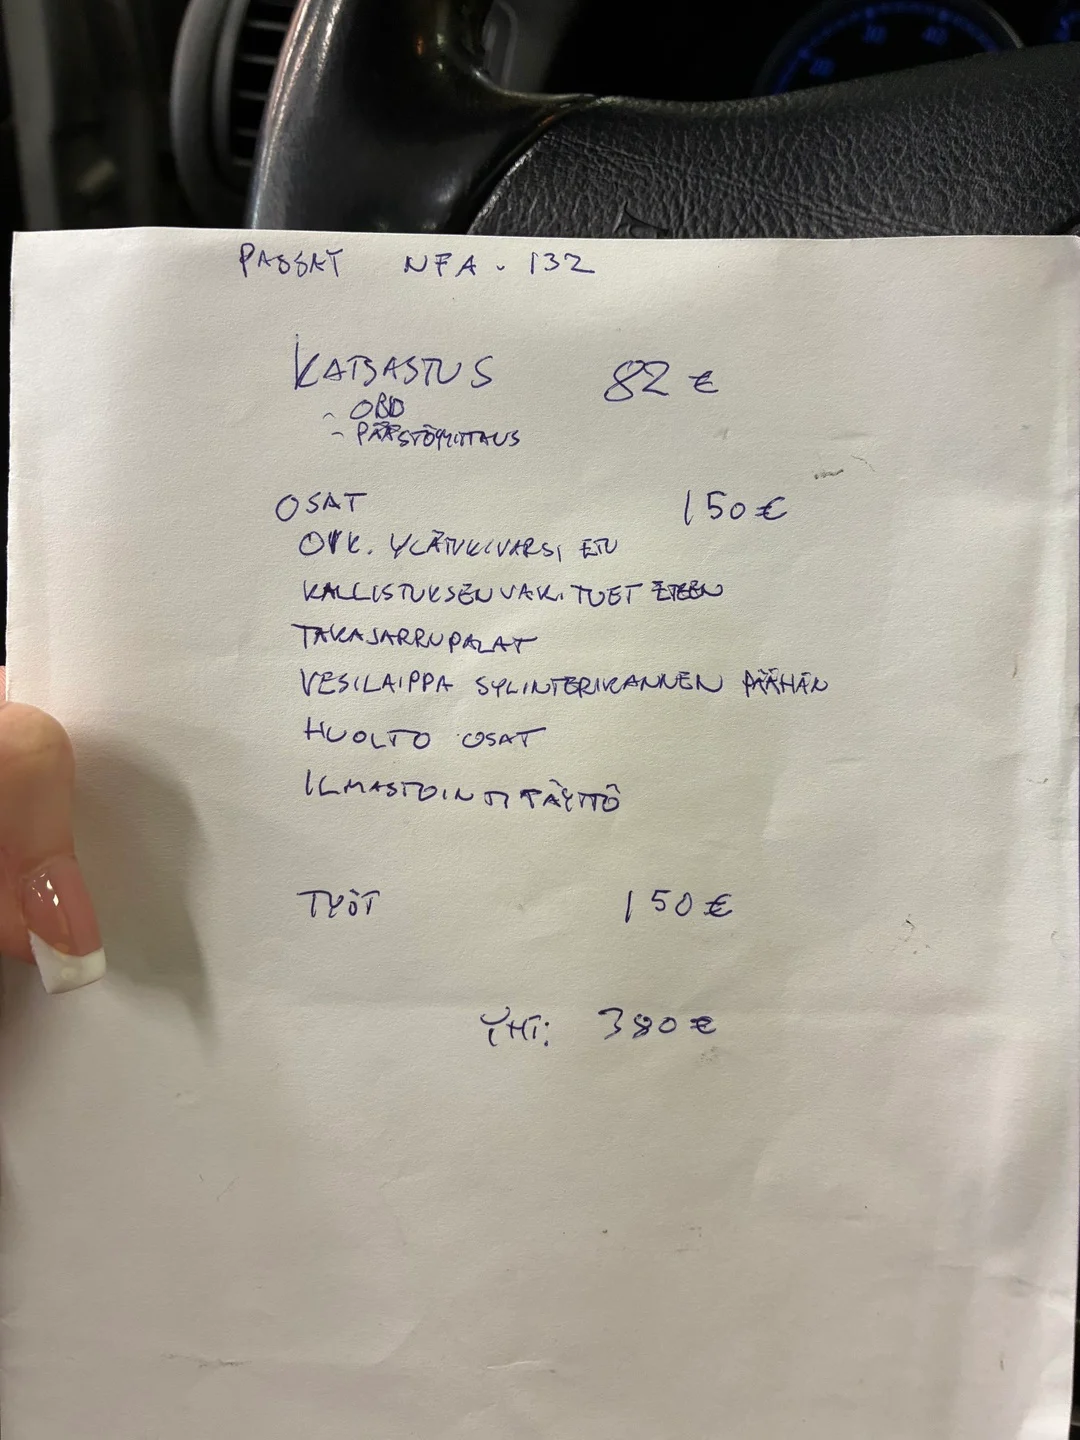 PASSAT NFA-132
KATSASTUS 82 €
- OBD
- PÄÄSTÖMITTAUS
OSAT 150 €
OIK. YLÄTUKIVARSI ETU
KALLISTUKSENVAK. TUET ETEEN
TAKAJARRUPALAT
VESILAIPPA SYLINTERIKANNEN PÄÄHÄN
HUOLTO OSAT
ILMASTOINTI TÄYTTÖ
TYÖT 150 €
YHT: 380 €